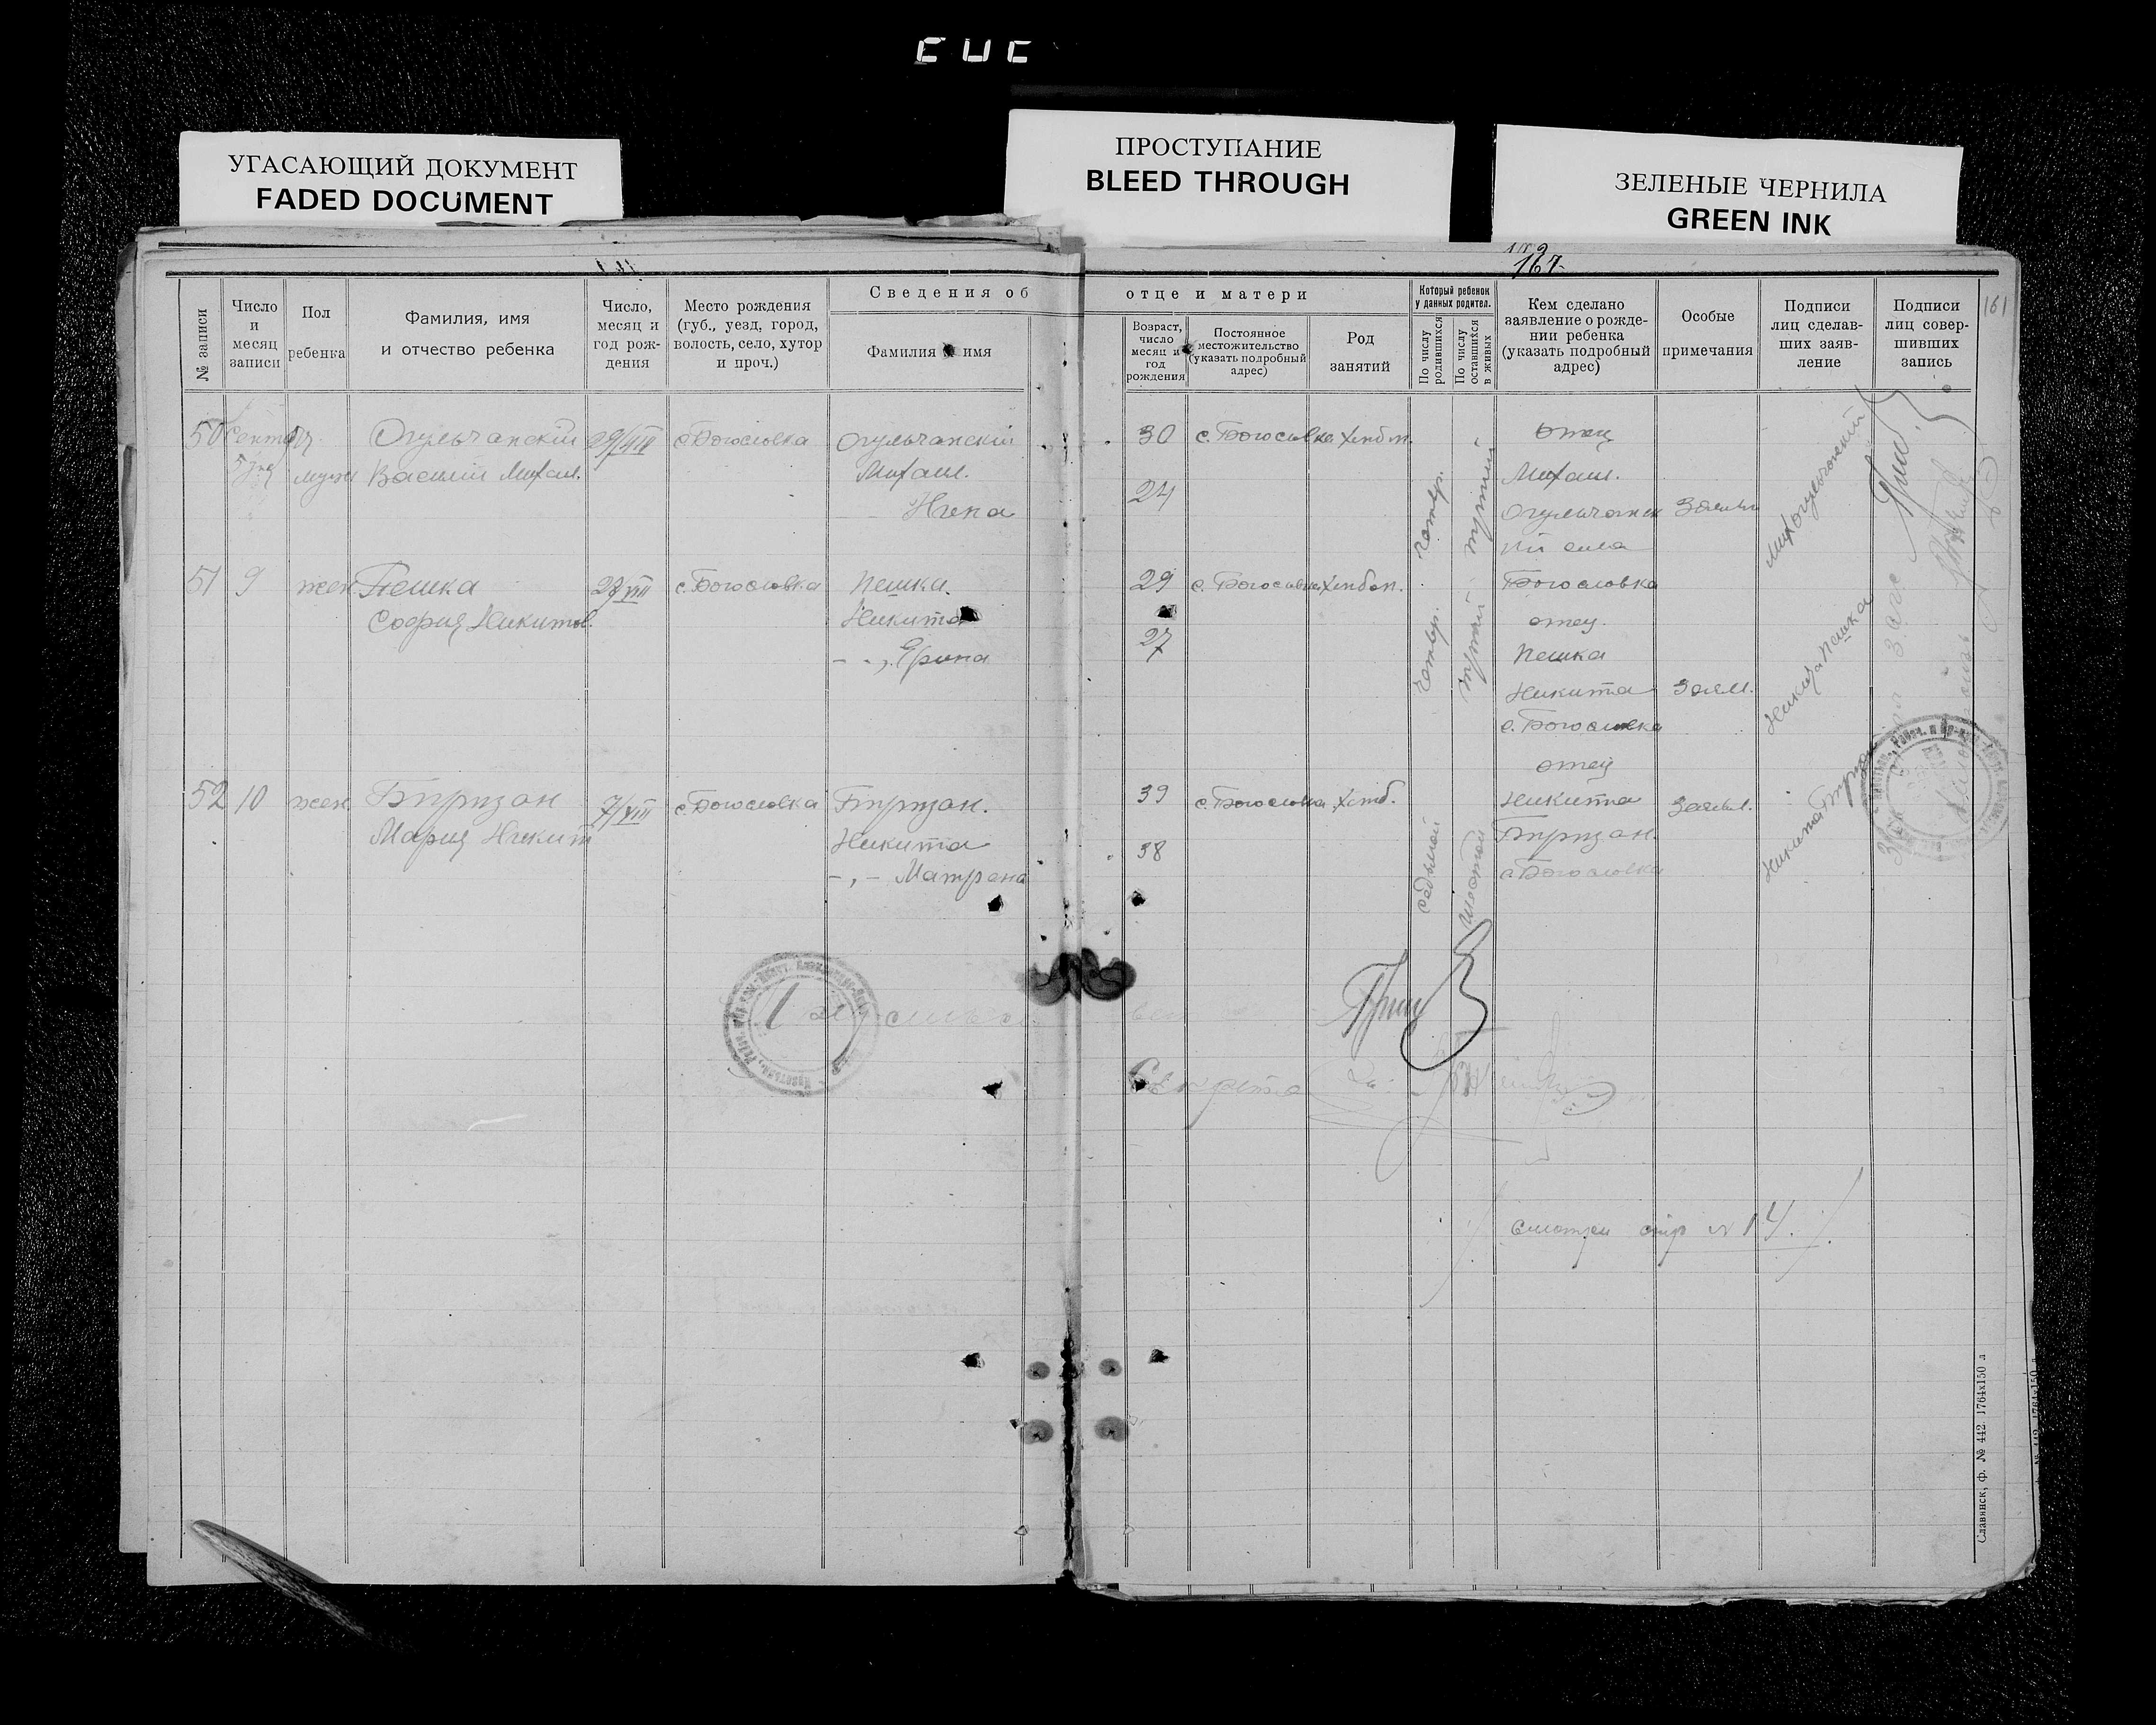 УГАСАЮЩИЙ ДОКУМЕНТ
FADED DOCUMENT
ПРОСТУПАНИЕ
BLEED THROUGH
ЗЕЛЕНЫЕ ЧЕРНИЛА
GREEN INK
167
161
№ записи
Число
и
месяц
записи
Пол
ребенка
Фамилия, имя
и отчество ребенка
Число,
месяц и
год рож-
дения
Место рождения
(губ., уезд, город,
волость, село, хутор
и проч.)
Сведения об отце и матери
Фамилия и имя
Возраст,
число
месяц и
год
рождения
Постоянное
местожительство
(указать подробный
адрес)
Род
занятий
Который ребенок
у данных родител.
По числу
родившихся
По числу
оставшихся
в живых
Кем сделано
заявление о рожде-
нии ребенка
(указать подробный
адрес)
Особые
примечания
Подписи
лиц сделав-
ших заяв-
ление
Подписи
лиц совер-
шивших
запись
50
мужс
Огульчанскій
Василій Михаил.
29/VIII
с. Богословка
Огульчанскій
Михаил.
30
24
с. Богословка
Хлебоп.
четвер.
третий
отец
Михаил.
Огульчанск
ий села
Богословка
51 9 жен
Пешка
София Никитов.
28 VIII
с. Богословка
Пешка.
Никита
Ярина
29
27
с. Богословка
Хлебоп.
четвер.
третий
отец.
Пешка
Никита
с. Богословка
Заяв.
Никита Пешка
52 10 жен
Биризан
Мария Никит
7/VIII
с. Богословка
Биризан.
Никита
-„- Матрена
39
38
с. Богословка
Хлеб.
седьмой
шестой
отец
Никита
Биризан.
с. Богословка
Заявл.
Никита Бирзан
Смотри стр N 14.
Славянск, ф. № 442. 1764х150 л